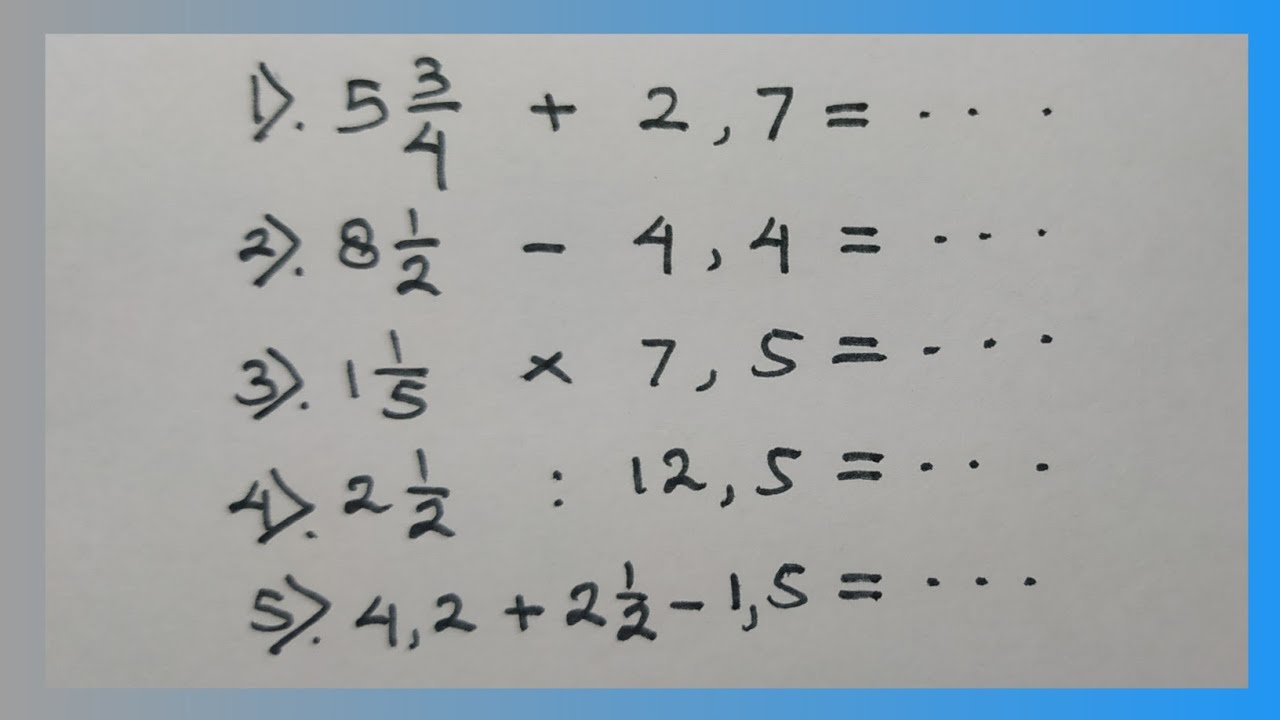 1). 5 3/4 + 2,7 = . . .
2). 8 1/2 - 4,4 = . . .
3). 1 1/5 × 7,5 = . . .
4). 2 1/2 : 12,5 = . . .
5). 4,2 + 2 1/2 - 1,5 = . . .